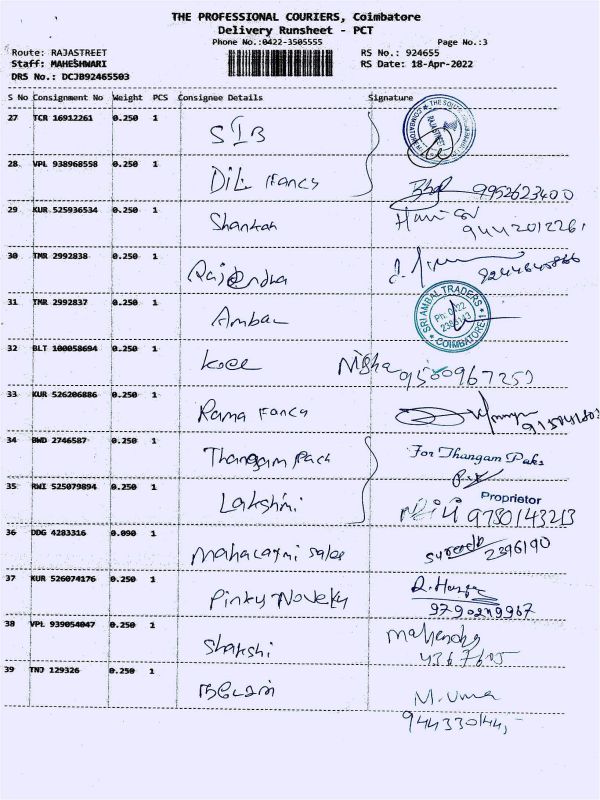 THE PROFESSIONAL COURIERS, Coimbatore
Delivery Runsheet - PCT
Phone No.:0422-3505555 Page No.:3
Route: RAJASTREET RS No.: 924655
Staff: MAHESHWARI RS Date: 18-Apr-2022
DRS No.: DCJB92465503
S No Consignment No Weight PCS Consignee Details Signature
27 TCR 16912261 0.250 1 SIB
28 VPL 938968558 0.250 1 Dili Fancy 9952623400
29 KUR 525936534 0.250 1 Shankar
30 TMR 2992838 0.250 1 Rajendra
31 TMR 2992837 0.250 1 Ambal SRI AMBAL TRADERS COIMBATORE
32 BLT 100058694 0.250 1 Nisha
33 KUR 526206886 0.250 1 Rama Fancy
34 BWD 2746587 0.250 1 Thangam Pack For Thangam Paks
Proprietor
35 RWI 525079894 0.250 1 Lakshmi 9750143213
36 DDG 4283316 0.090 1 2396190
37 KUR 526074176 0.250 1 Pinky Novelty
38 VPL 939054047 0.250 1 Shakshi
39 TNJ 129326 0.250 1 M. Uma